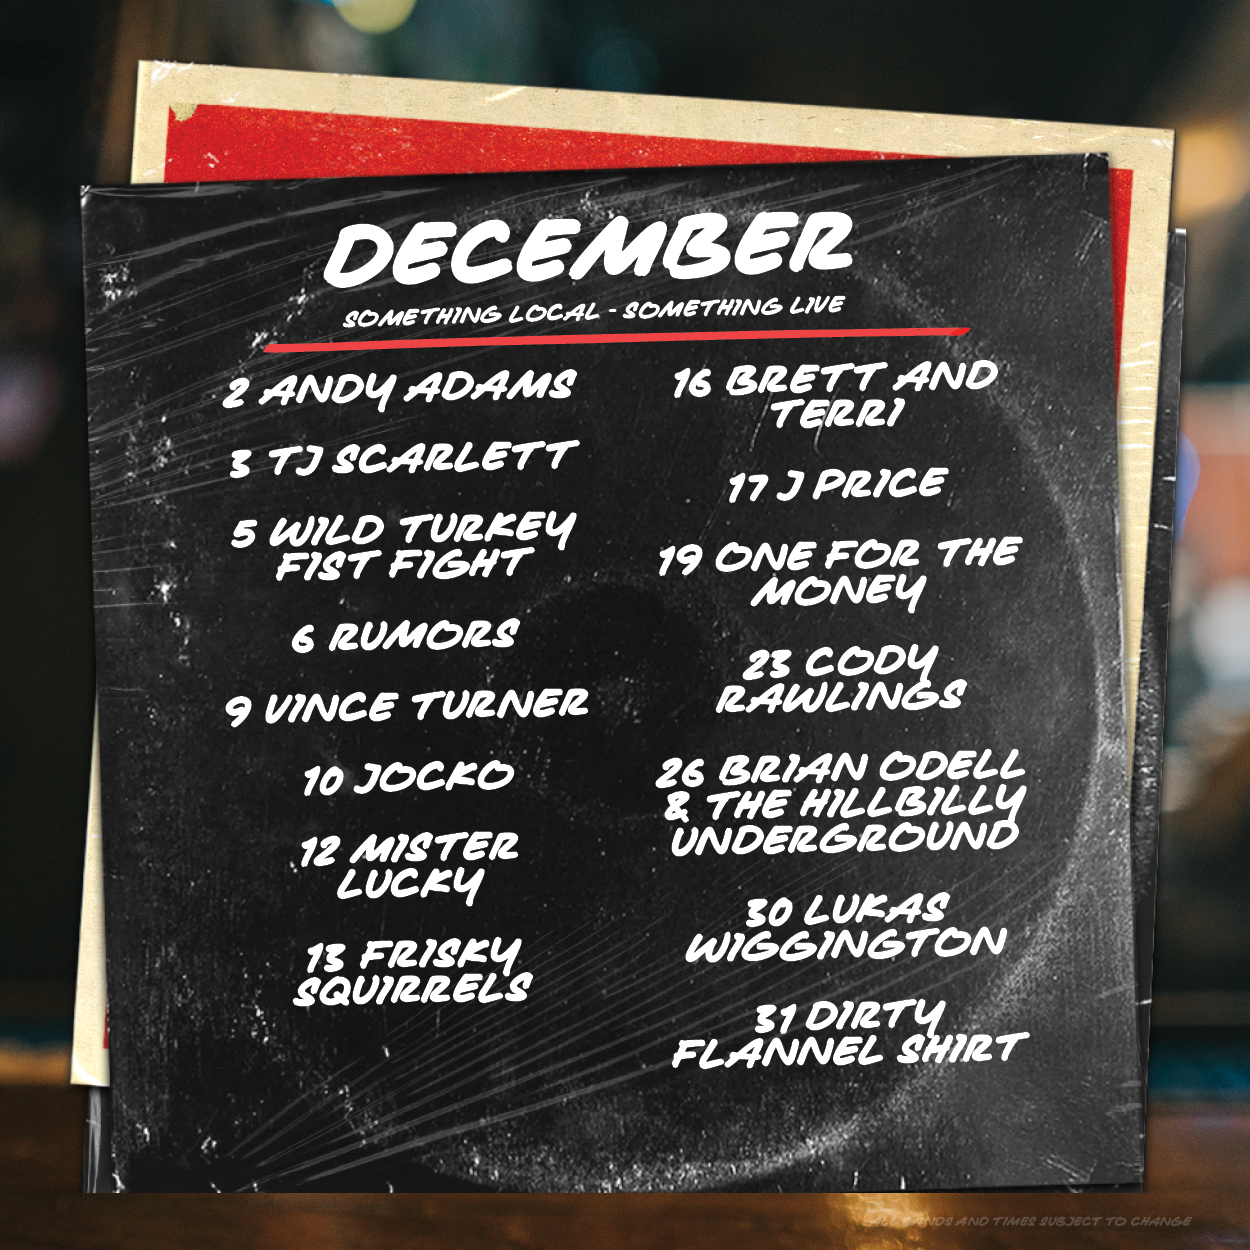 DECEMBER
SOMETHING LOCAL - SOMETHING LIVE
2 ANDY ADAMS
3 TJ SCARLETT
5 WILD TURKEY
FIST FIGHT
6 RUMORS
9 VINCE TURNER
10 JOCKO
12 MISTER
LUCKY
13 FRISKY
SQUIRRELS
16 BRETT AND
TERRI
17 J PRICE
19 ONE FOR THE
MONEY
23 CODY
RAWLINGS
26 BRIAN ODELL
& THE HILLBILLY
UNDERGROUND
30 LUKAS
WIGGINGTON
31 DIRTY
FLANNEL SHIRT
ALL BANDS AND TIMES SUBJECT TO CHANGE